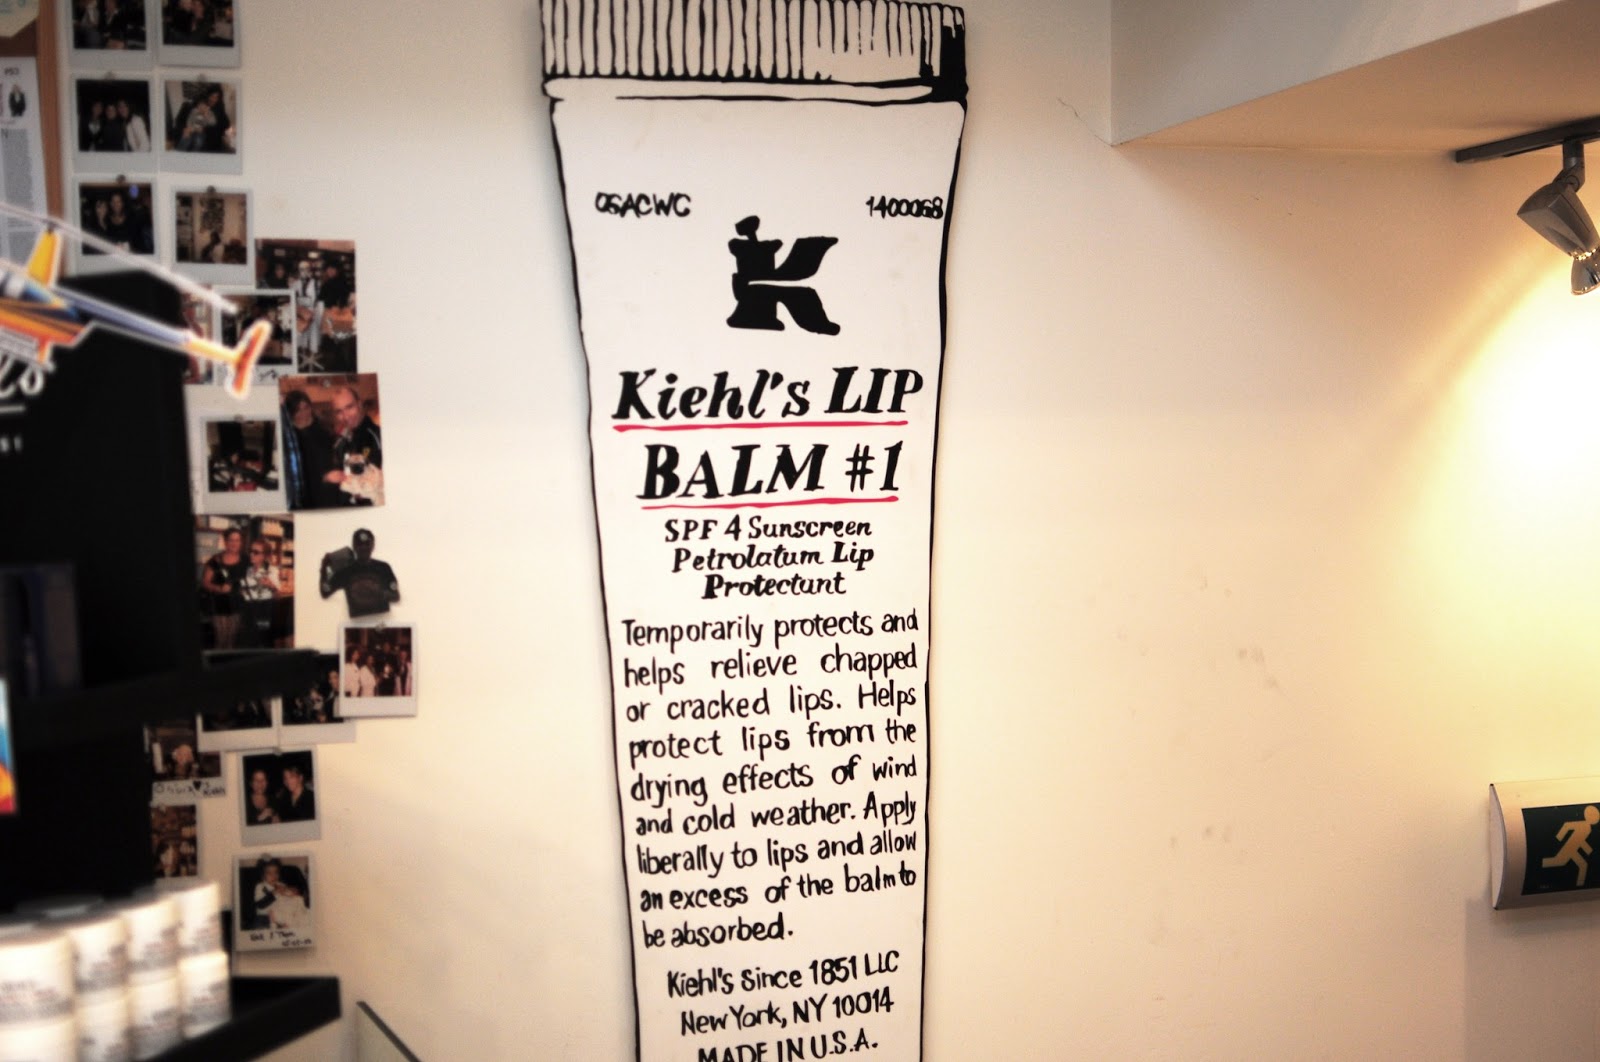 05ACWC 1400058
K
Kiehl's LIP
BALM #1
SPF 4 Sunscreen
Petrolatum Lip
Protectant
Temporarily protects and
helps relieve chapped
or cracked lips. Helps
protect lips from the
drying effects of wind
and cold weather. Apply
liberally to lips and allow
an excess of the balm to
be absorbed.
Kiehl's Since 1851 LLC
New York, NY 10014
MADE IN U.S.A.